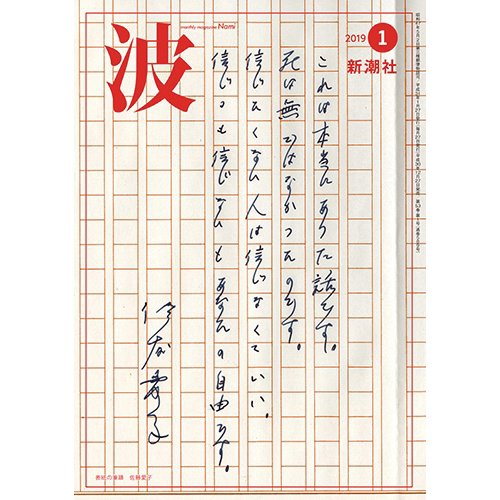 波
monthly magazine Nami
2019 1
新潮社
これは本当にあった話です。
死は無ではなかったのです。
信じたくない人は信じなくていい。
信じるも信じないもあなたの自由です。
佐藤愛子
表紙の筆蹟 佐藤愛子